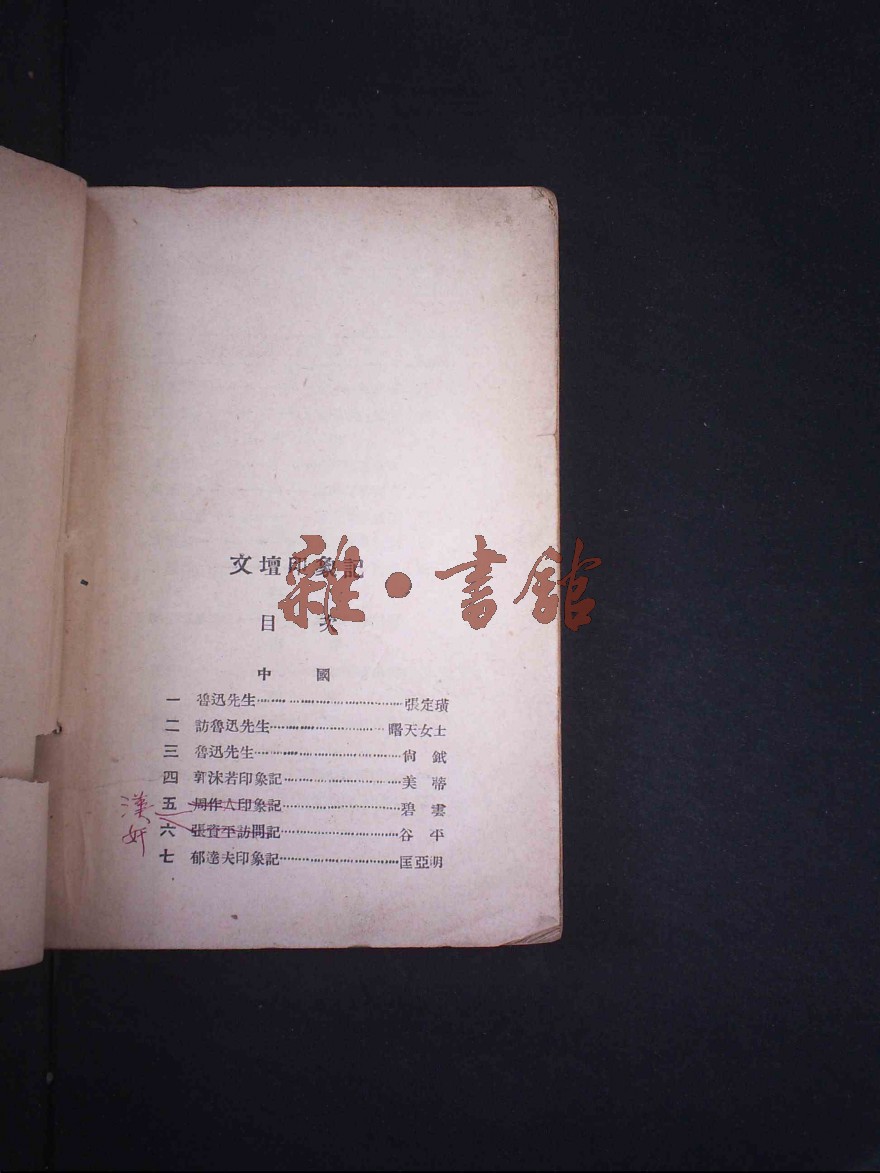 文壇印象記
目次
中國
一 魯迅先生 張定璜
二 訪魯迅先生 曙天女士
三 魯迅先生 尙鉞
四 郭沫若印象記 美蒂
五 周作人印象記 碧雲
六 張資平訪問記 谷平
七 郁達夫印象記 匡亞明
漢奸
雜·書館